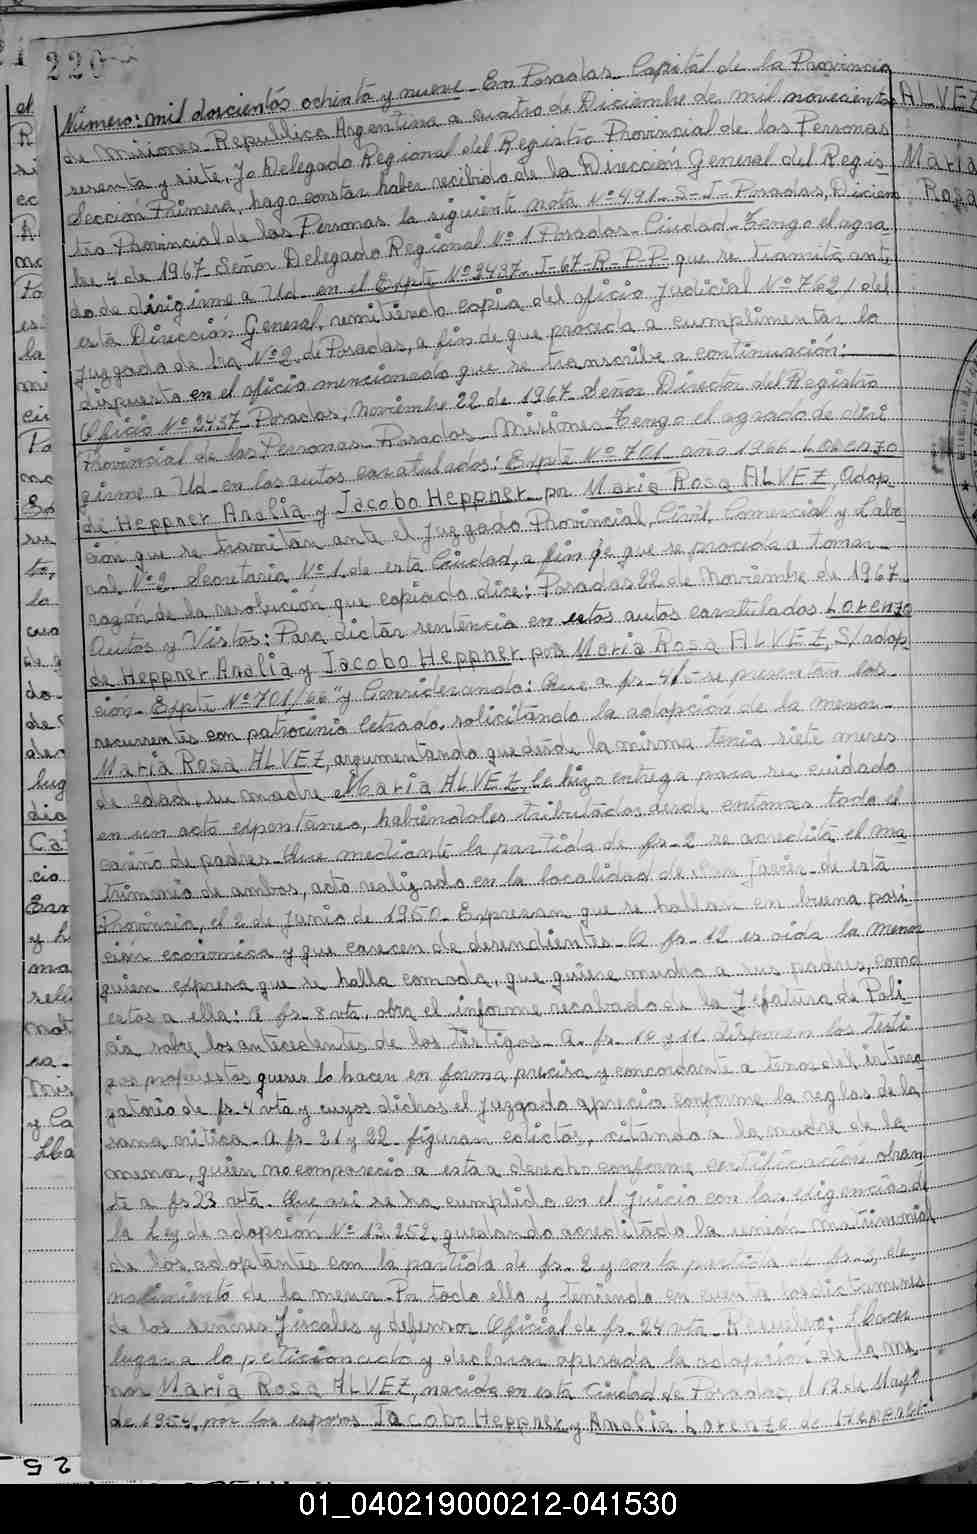 220
ALVEZ
Maria
Rosa
Número: mil doscientos ochenta y nueve - En Posadas - Capital de la Provincia
de Misiones - Republica Argentina a cuatro de Diciembre de mil novecientos
sesenta y siete, Yo Delegado Regional del Registro Provincial de las Personas
Sección Primera, hago constar haber recibido de la Dirección General del Regis-
tro Provincial de las Personas la siguiente nota Nº 491 - S-J- Posadas, Diciem
bre 4 de 1967 Señor Delegado Regional Nº 1 Posadas - Ciudad - Tengo el agra
do de dirigirme a Ud - en el Expte Nº 3437 - J-67-R-P-P- que se tramita ante
esta Dirección General, remitiendo copia del oficio judicial Nº 762 / del
juzgado de 1ra Nº 2 de Posadas, a fin de que proceda a cumplimentar lo
dispuesto en el oficio mencionado que se transcribe a continuación:
Oficio Nº 3437 - Posadas, Noviembre 22 de 1967 - Señor Director del Registro
Provincial de las Personas - Posadas - Misiones - Tengo el agrado de diri
girme a Ud - en los autos caratulados: Expte Nº 701 - año 1966 - Lorenzo
de Heppner Analia y Jacobo Heppner por Maria Rosa ALVEZ, Adop-
ción que se tramitan ante el Juzgado Provincial, Civil, Comercial y Labo-
ral Nº 2 Secretaria Nº 1 de esta Ciudad, a fin de que se proceda a tomar
razón de la resolución que copiada dice: Posadas 22 de Noviembre de 1967
Autos y Vistos: Para dictar sentencia en estos autos caratulados Lorenzo
de Heppner Analia y Jacobo Heppner por Maria Rosa ALVEZ, S/adop-
ción - Expte Nº 701/66" y Considerando: Que a fs - 4/5 - se presentan los
recurrentes con patrocinio letrado, solicitando la adopción de la menor
Maria Rosa ALVEZ, argumentando que desde la misma tenia siete meses
de edad, su madre Maria ALVEZ, le hizo entrega para su cuidado
en un acto expontaneo, habiendoles tributados desde entonces todo el
cariño de padres - Que mediante la partida de fs - 2 se acredita el ma
trimonio de ambos, acto realizado en la localidad de San Javier de esta
Provincia, el 2 de Junio de 1950 - Expresan que se hallan en buena posi
ción económica y que carecen de desendientes - A fs - 12 es oida la menor
quien expresa que se halla comoda, que quiere mucho a sus padres, como
estos a ella: a fs - 8 vta, obra el informe recabado de la Jefatura de Poli
cia sobre los antecedentes de los testigos - A fs - 10 y 11 disponen los testi
gos propuestos quenes lo hacen en forma precisa y concordante a tenor del interro
gatorio de fs 4 vta y cuyos dichos el juzgado aprecia conforme la reglas de la
sana critica - A fs - 21 y 22 - figuran edictos, citando a la madre de la
menor, quien no comparecio a esta a derecho conforme certificación obran
te a fs 23 vta - Que asi se ha cumplido en el juicio con las exigencias de
la Ley de adopción Nº 13.252, quedando acreditado la unión matrimonial
de los adoptantes con la partida de fs - 2 y con la partida de fs - 3, de
nacimiento de la menor - Por todo ello y teniendo en cuenta los dictamenes
de los señores fiscales y defensor Oficial de fs - 24 vta - Resuelvo; Hacer
lugar a lo peticionado y declarar operada la adopción de la me
nor Maria Rosa ALVEZ, nacida en esta Ciudad de Posadas, el 19 de Mayo
de 1954, por los esposos Jacobo Heppner y Analia Lorenzo de Heppner
25
01_040219000212-041530